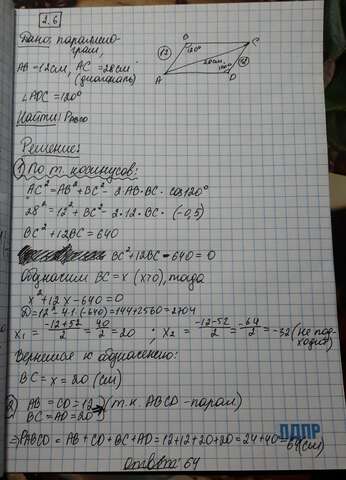 2.6
Дано: параллело-
грам
AB = 12см, AC = 28см
(диагональ)
∠ADC = 120°
Найти: PABCD
B
C
12
120°
28см
120°
12
A
D
Решение:
1 По т. косинусов:
AC² = AB² + BC² - 2·AB·BC· cos120°
28² = 12² + BC² - 2·12·BC· (-0,5)
BC² + 12BC = 640
BC² + 12BC - 640 = 0
Обозначим BC = x (x>0), тогда
x² + 12x - 640 = 0
D = 12² - 4·1·(-640) = 144 + 2560 = 2704
x₁ = (-12+52)/2 = 40/2 = 20 ; x₂ = (-12-52)/2 = -64/2 = -32 (не под-
ходит)
Вернемся к обозначению:
BC = x = 20 (см)
2 AB = CD = 12 (т.к. ABCD - парал)
BC = AD = 20
ПДДР
⇒ PABCD = AB + CD + BC + AD = 12+12+20+20 = 24+40 = 64(см)
Ответ: 64